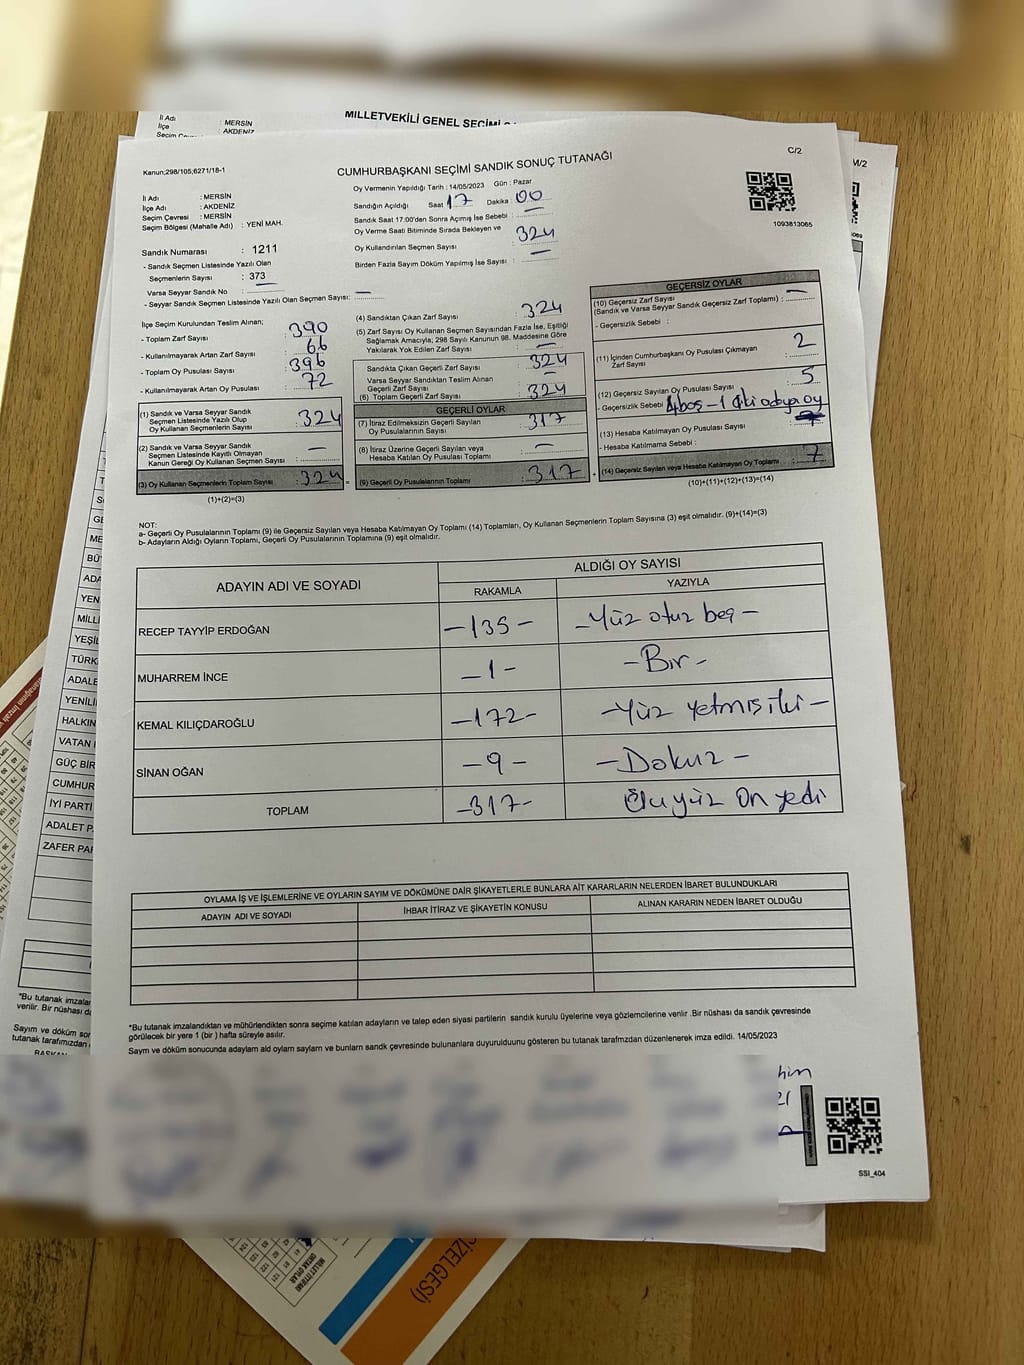 İl Adı : MERSİN
İlçe : AKDENİZ
MİLLETVEKİLİ GENEL SEÇİMİ
M/2
C/2
Kanun;298/105;6271/18-1
CUMHURBAŞKANI SEÇİMİ SANDIK SONUÇ TUTANAĞI
Oy Vermenin Yapıldığı Tarih : 14/05/2023 Gün : Pazar
İl Adı : MERSİN
İlçe Adı : AKDENİZ
Seçim Çevresi : MERSİN
Seçim Bölgesi (Mahalle Adı) : YENİ MAH.
Sandığın Açıldığı Saat 17 Dakika 00
Sandık Saat 17:00'den Sonra Açmış İse Sebebi :
Oy Verme Saati Bitiminde Sırada Bekleyen ve
Oy Kullandırılan Seçmen Sayısı : 324
Birden Fazla Sayım Döküm Yapılmış İse Sayısı : —
1093813065
Sandık Numarası : 1211
- Sandık Seçmen Listesinde Yazılı Olan
Seçmenlerin Sayısı : 373
Varsa Seyyar Sandık No : —
- Seyyar Sandık Seçmen Listesinde Yazılı Olan Seçmen Sayısı: —
İlçe Seçim Kurulundan Teslim Alınan;
- Toplam Zarf Sayısı : 390
- Kullanılmayarak Artan Zarf Sayısı : 66
- Toplam Oy Pusulası Sayısı : 396
- Kullanılmayarak Artan Oy Pusulası : 72
(1) Sandık ve Varsa Seyyar Sandık
Seçmen Listesinde Yazılı Olup
Oy Kullanan Seçmenlerin Sayısı : 324
(2) Sandık ve Varsa Seyyar Sandık
Seçmen Listesinde Kayıtlı Olmayan
Kanun Gereği Oy Kullanan Seçmen Sayısı : —
(3) Oy Kullanan Seçmenlerin Toplam Sayısı : 324
(1)+(2)=(3)
(4) Sandıktan Çıkan Zarf Sayısı : 324
(5) Zarf Sayısı Oy Kullanan Seçmen Sayısından Fazla İse, Eşitliği
Sağlamak Amacıyla; 298 Sayılı Kanunun 98. Maddesine Göre
Yakılarak Yok Edilen Zarf Sayısı : —
Sandıkta Çıkan Geçerli Zarf Sayısı : 324
Varsa Seyyar Sandıktan Teslim Alınan
Geçerli Zarf Sayısı : —
(6) Toplam Geçerli Zarf Sayısı : 324
GEÇERLİ OYLAR
(7) İtiraz Edilmeksizin Geçerli Sayılan
Oy Pusulalarının Sayısı : 317
(8) İtiraz Üzerine Geçerli Sayılan veya
Hesaba Katılan Oy Pusulası Toplamı : —
(9) Geçerli Oy Pusulalarının Toplamı : 317
GEÇERSİZ OYLAR
(10) Geçersiz Zarf Sayısı
(Sandık ve Varsa Seyyar Sandık Geçersiz Zarf Toplamı) : —
- Geçersizlik Sebebi :
(11) İçinden Cumhurbaşkanı Oy Pusulası Çıkmayan
Zarf Sayısı : 2
(12) Geçersiz Sayılan Oy Pusulası Sayısı : 5
- Geçersizlik Sebebi 4 boş - 1 iki adaya oy
(13) Hesaba Katılmayan Oy Pusulası Sayısı :
- Hesaba Katılmama Sebebi :
(14) Geçersiz Sayılan veya Hesaba Katılmayan Oy Toplamı : 7
(10)+(11)+(12)+(13)=(14)
NOT:
a- Geçerli Oy Pusulalarının Toplamı (9) ile Geçersiz Sayılan veya Hesaba Katılmayan Oy Toplamı (14) Toplamları, Oy Kullanan Seçmenlerin Toplam Sayısına (3) eşit olmalıdır. (9)+(14)=(3)
b- Adayların Aldığı Oyların Toplamı, Geçerli Oy Pusulalarının Toplamına (9) eşit olmalıdır.
ADAYIN ADI VE SOYADI
ALDIĞI OY SAYISI
RAKAMLA YAZIYLA
RECEP TAYYİP ERDOĞAN -135- -Yüz otuz beş-
MUHARREM İNCE -1- -Bir-
KEMAL KILIÇDAROĞLU -172- -Yüz Yetmiş iki-
SİNAN OĞAN -9- -Dokuz-
TOPLAM -317- Üçyüz on yedi
OYLAMA İŞ VE İŞLEMLERİNE VE OYLARIN SAYIM VE DÖKÜMÜNE DAİR ŞİKAYETLERLE BUNLARA AİT KARARLARIN NELERDEN İBARET BULUNDUKLARI
ADAYIN ADI VE SOYADI İHBAR İTİRAZ VE ŞİKAYETİN KONUSU ALINAN KARARIN NEDEN İBARET OLDUĞU
*Bu tutanak imzalandıktan ve mühürlendikten sonra seçime katılan adayların ve talep eden siyasi partilerin sandık kurulu üyelerine veya gözlemcilerine verilir .Bir nüshası da sandık çevresinde
görülecek bir yere 1 (bir ) hafta süreyle asılır.
Sayım ve döküm sonucunda adayların aldı oyların sayıların ve bunların sandk çevresinde bulunanlara duyurulduunu gösteren bu tutanak tarafmzdan düzenlenerek imza edildi. 14/05/2023
SSI_404
YENİ
MİLLİ
YEŞİL
TÜRK
ADALE
YENİLİ
HALKIN
VATAN
GÜÇ BİR
CUMHUR
İYİ PARTİ
ADALET P
ZAFER PA
*Bu tutanak imzala
verilir. Bir nüshası da
Sayım ve döküm son
tutanak tarafımızdan
ÇİZELGESİ)